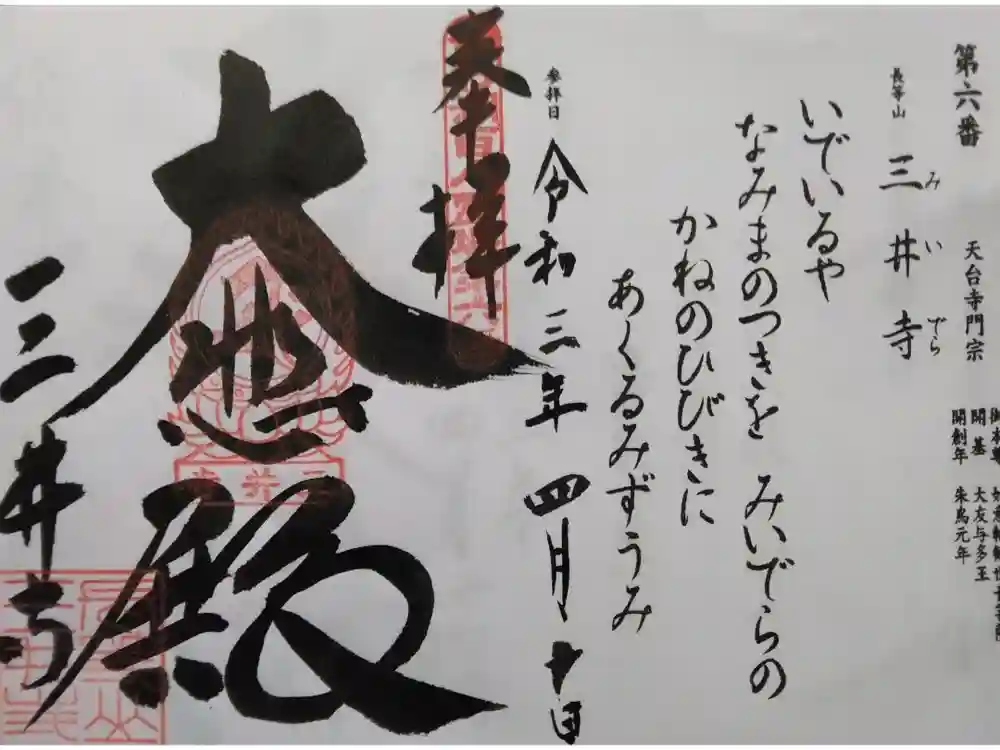 第六番
天台寺門宗
開基 大友与多王
開創年 朱鳥元年
長等山 三井寺
みいでら
いでいるや
なみまのつきを みいでらの
かねのひびきに
あくるみずうみ
参拝日 令和三年 四月十日
奉拝
大悲殿
三井寺